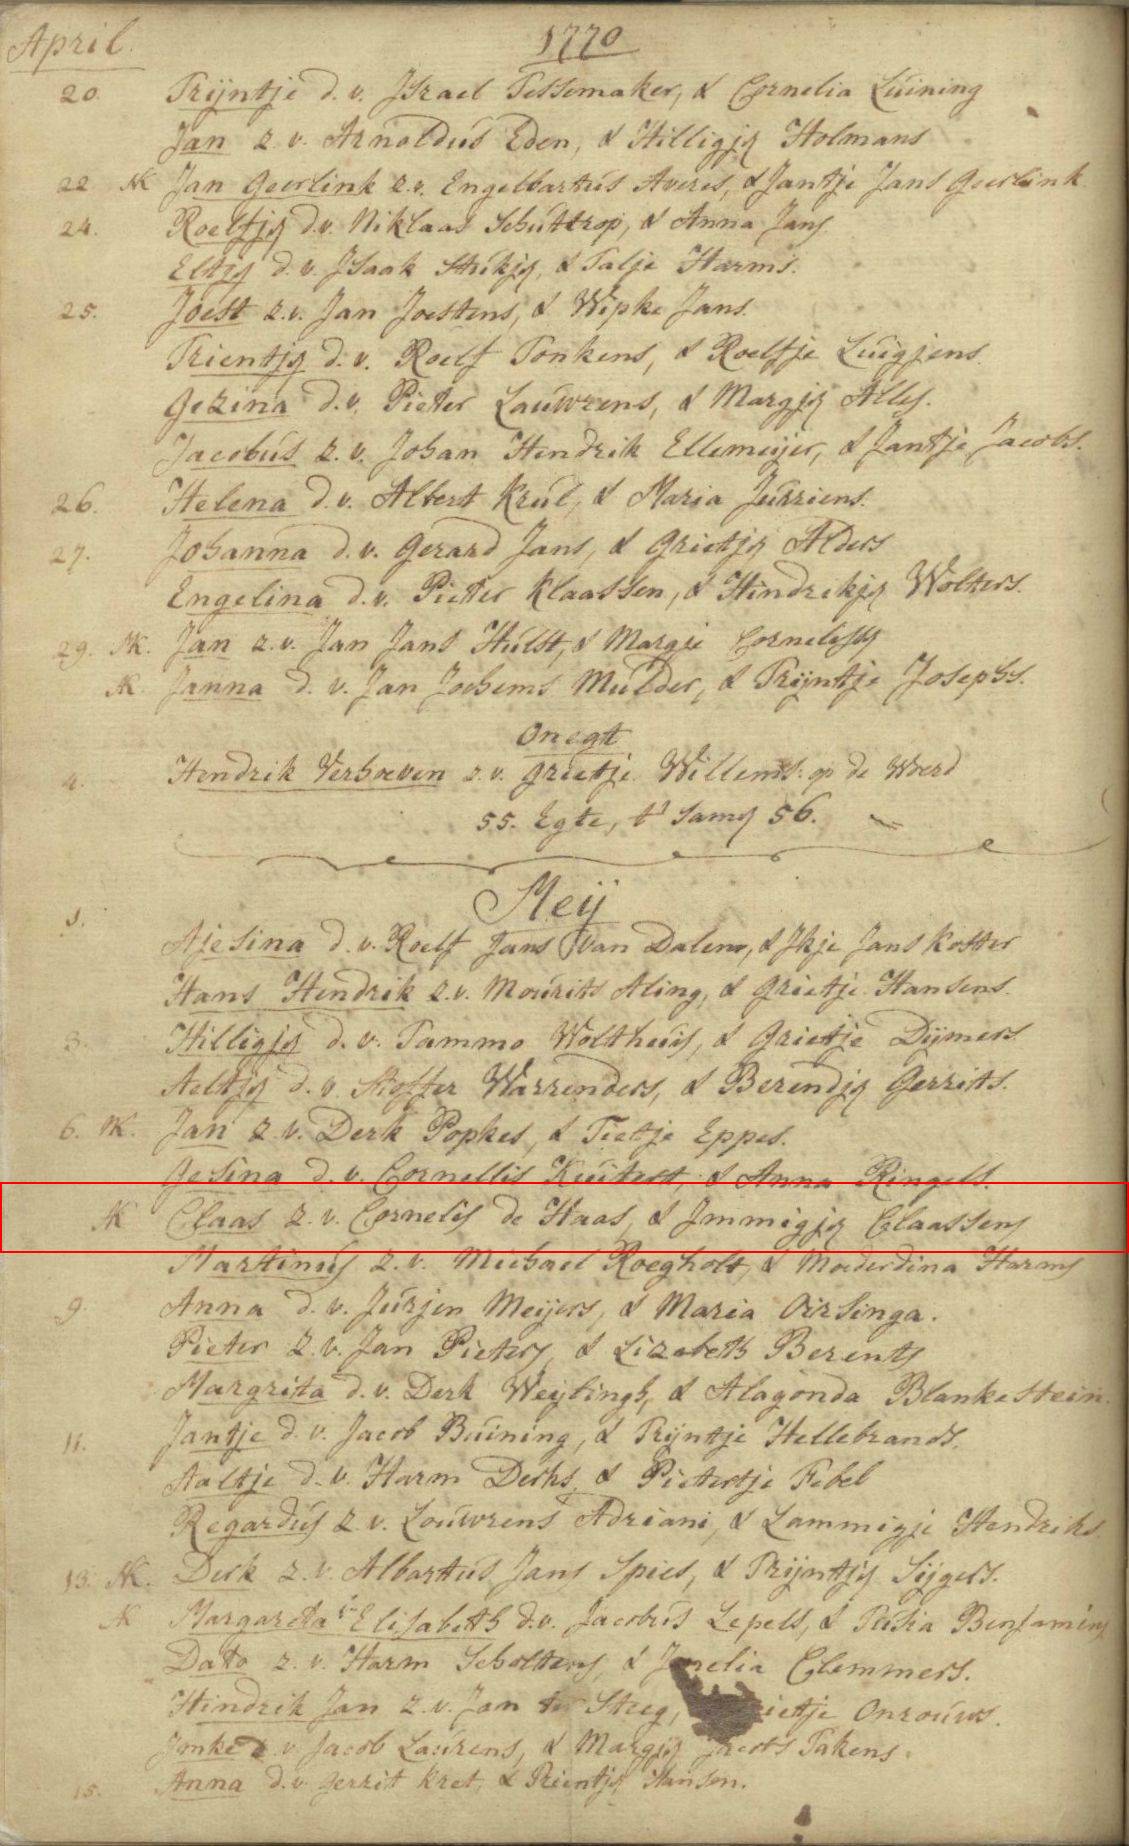 April. 1770
20. Trijntje d. v. JSrael Tessemaker, & Cornelia Luining
Jan z. v. Arnoldus Eden, & Hilligjen Holmans
22 NK Jan Geerlink z. v. Engelbartus Averes, & Jantje Jans Geerlink
24. Roelfjen d. v. Niklaas Schuttrop, & Anna Jans
Eltjen d. v. JSaak & Talje Harms.
25. Joest z. v. Jan Joestens, & Wipke Jans.
Trientjen d. v. Roelf Tonkens, & Roelfje Luigjens
Gezina d. v. Pieter Lauwrens, & Margjen Alles.
Jacobus z. v. Johan Hendrik Ellemeijer, & Jantje Jacobs.
26. Helena d. v. Albert Krul, & Maria Jurriens.
27. Johanna d. v. Gerard Jans, & Grietjen Alders
Engelina d. v. Pieter Klaassen, & Hindrikjen Wolters.
29. NK. Jan z. v. Jan Jans Hulst, & Margje Cornelissen
NK Janna d. v. Jan Jochems Mulder, & Trijntje Josephs.
Onegt
4. Hendrik Verhoeven z. v. Grietje Willems: op de Woerd
55. Egte, t' Samen 56.
Meij
1. Ajesina d. v. Roelf Jans van Dalen, & Ikje Jans Koster
Hans Hendrik z. v. Mourits Aling, & Grietje Hansens.
3. Hilligjen d. v. Tammo Wolthuis, & Grietje Dijmers
Aeltjen d. v. Stoffer Warrenders, & Berendjen Gerrits.
6. NK. Jan z. v. Derk Popkes, & Tietje Eppes.
Gesina d. v. Cornellis Kuitert, & Anna Ringels.
NK Claas z. v. Cornelis de Haas, & Immigjen Claassens
Martinus z. v. Michael Roegholt, & Moederdina Harms
9. Anna d. v. Jurjen Meijers, & Maria Oirsinga.
Pieter z. v. Jan Pieters, & Lizebeth Berents
Margrita d. v. Derk Weijtingh, & Alagonda Blankestein.
11. Jantje d. v. Jacob Buining, & Trijntje Hellebrands.
Aaltje d. v. Harm Derks, & Pietertje Febel
Regardus z. v. Louwrens Adriani, & Lammigje Hendriks
13. NK. Derk z. v. Albartus Jans Spies, & Trijntjen Sijgers.
NK Margareta Elisabeth d. v. Jacobus Lepels, & Benjamins
Dato z. v. Harm Scholtens, & Clemmers.
Hindrik Jan z. v. Jan ter Steeg, Onrouws.
Imke d v Jacob Laurens, & Margjen Jacobs Takens.
15. Anna d. v. Gerrit Kret, & Trientjen Hansen.